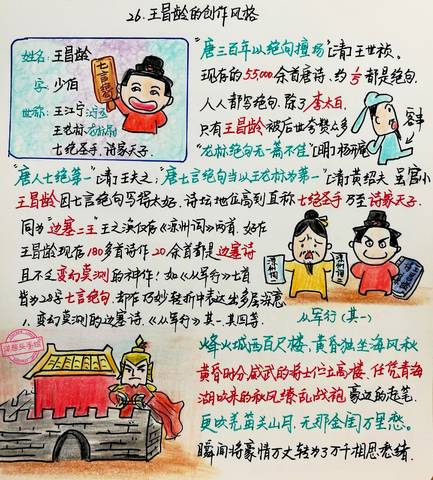 26.王昌龄的创作风格
姓名: 王昌龄
字: 少伯
世称: 王江宁
王龙标
七绝圣手, 诗家天子.
七言绝句
"唐三百年以绝句擅场"[清]王世祯.
现存的55000余首唐诗, 约1/5都是绝句.
人人都写绝句. 除了李太白,
只有王昌龄被后世夸赞众多
"龙标绝句无一篇不佳"[明]杨
"唐人七绝第一"[清]王夫之; "唐七言绝句当以王龙标为第一"[清]黄绍夫 虽官小
王昌龄因七言绝句写得太好, 诗坛地位高到直称七绝圣手乃至诗家天子.
同为"边塞二王"王之涣仅存《凉州词》两首. 好在
王昌龄现存180多首诗作20余首都是边塞诗
且不乏变幻莫测的神作! 如《从军行》七首
皆为28字七言绝句, 却在巧妙转折中表达出多层深意
, 变幻莫测的边塞诗.《从军行》其一其四等.
凉州词
从军行(其一)
烽火城西百尺楼, 黄昏独坐海风秋
黄昏时分威武的将士伫立高楼, 任凭青海
湖吹来的秋风缭乱战袍 豪迈的起笔.
更吹羌笛关山月, 无那金闺万里愁.
瞬间将豪情万丈转为了万千相思愁绪.